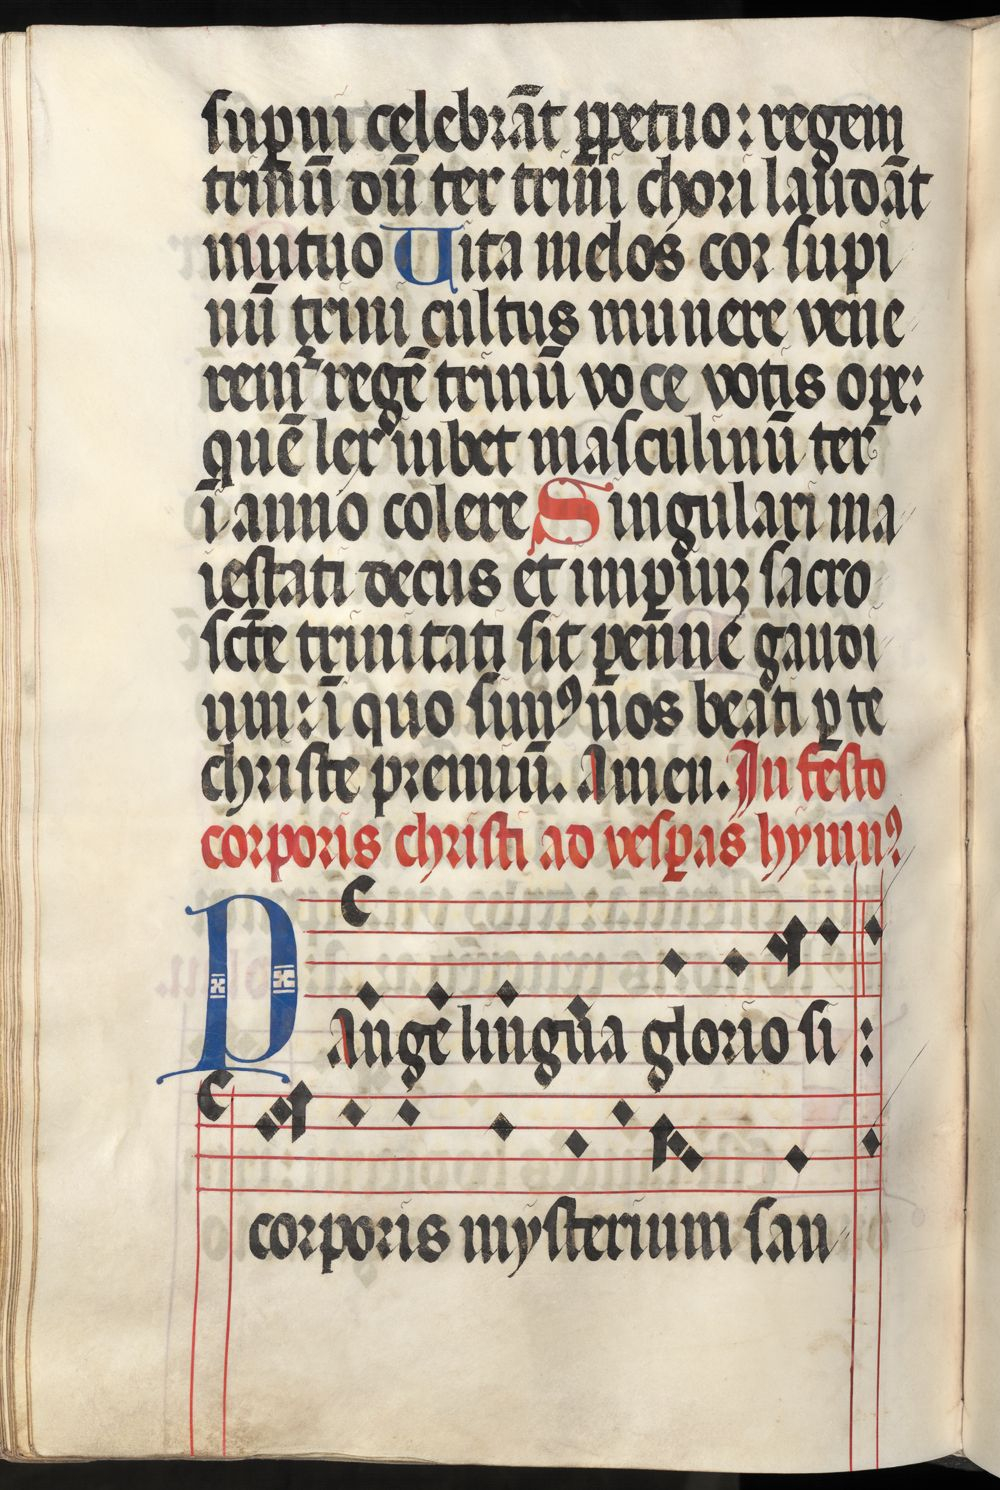 suꝑni celebrāt ꝑpetuo : regem
trinū dn̄ ter trini chori laudāt
mutuo Uita melos cor supi
nū trini cultus munere vene
rem² regē trinū voce votis oꝑe:
quē lex iubet masculinū ter
ī anno colere Singulari ma
iestati decus et imꝑiuꝫ sacro
scte trinitati sit ꝑenne gaudi
um: ī quo simꝰ nos beati ꝑ te
christe premiū. Amen. In festo
corporis christi ad vesꝑas hymnꝰ
Pange lingua glorio si :
corporis mysterium san